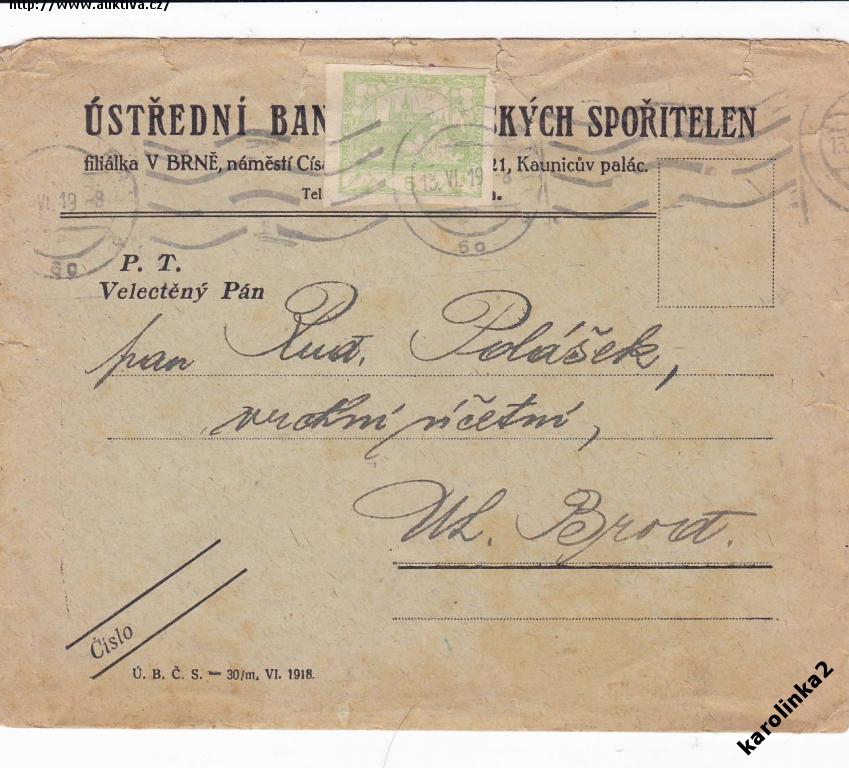 http://www.auktiva.cz/
ÚSTŘEDNÍ BAN KÝCH SPOŘITELEN
filiálka V BRNĚ, náměstí Císa 21, Kaunicův palác.
Tel
POŠTA
13. VI. 19 8
VI. 19 8
6g
6g
13.
P. T.
Velectěný Pán
pan Rud. Polášek,
vrchní účetní,
Uh. Brod.
Číslo
Ú. B. Č. S. — 30/m, VI. 1918.
karolinka2